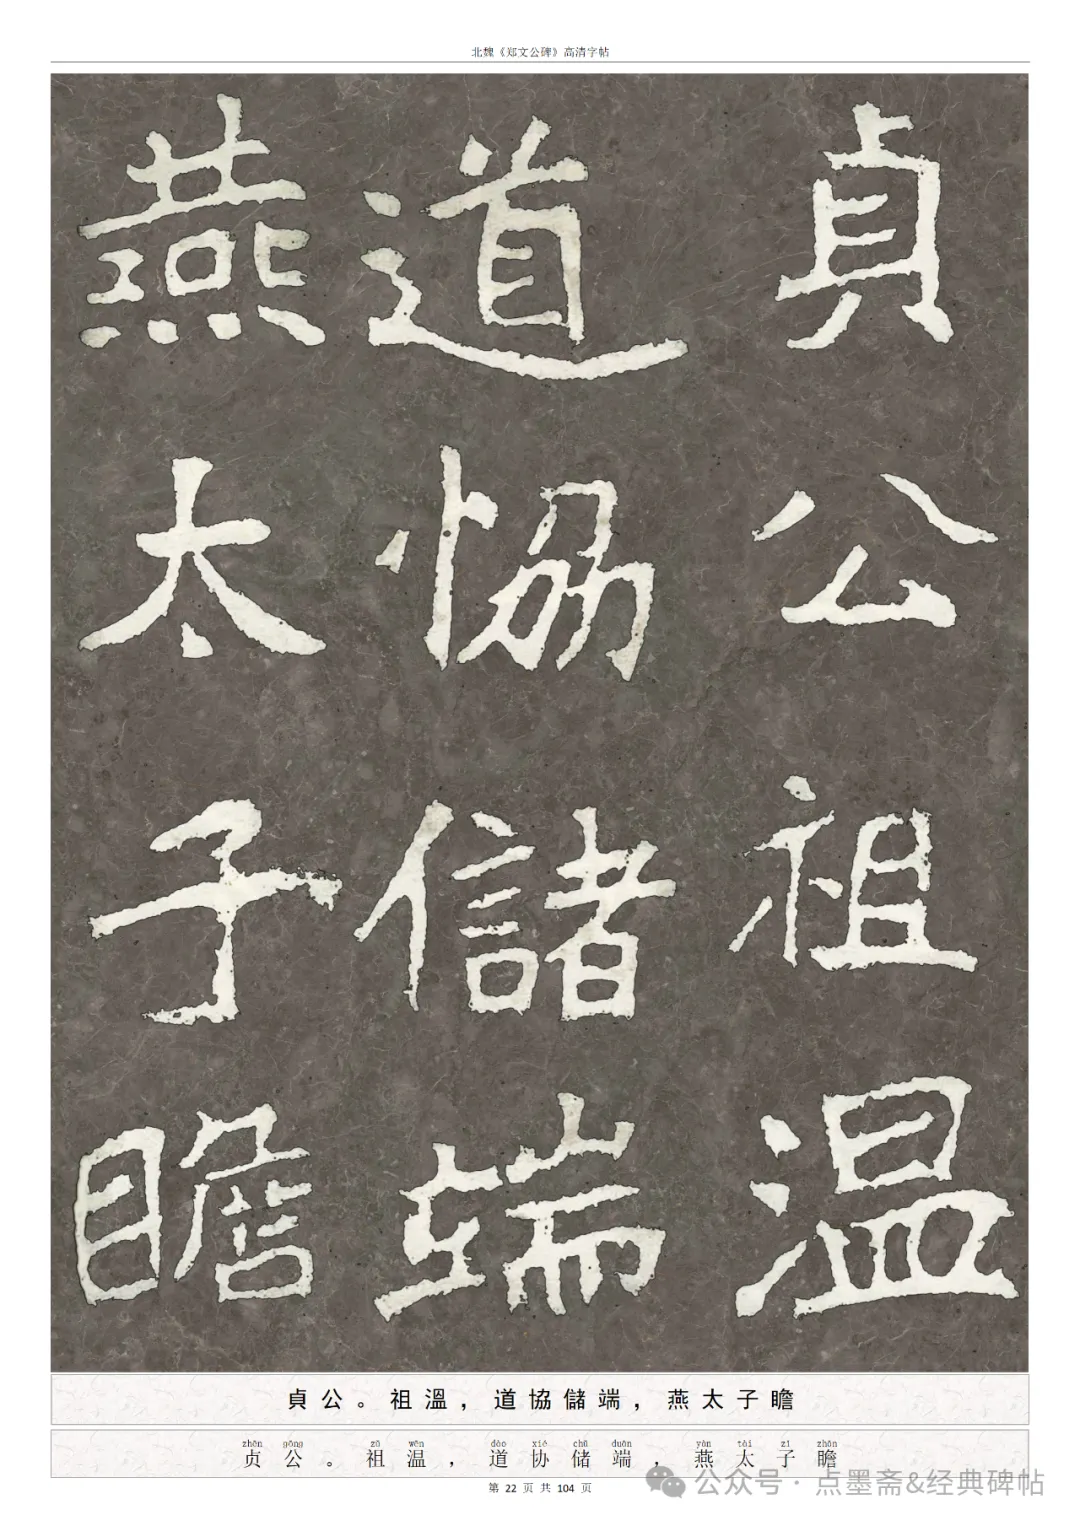 北魏《郑文公碑》高清字帖
貞公祖温
道協儲端
燕太子瞻
貞公。祖溫，道協儲端，燕太子瞻
zhēn gōng zǔ wēn dào xié chǔ duān yàn tài zǐ zhān
贞公。祖温，道协储端，燕太子瞻
第 22 页 共 104 页
公众号 · 点墨斋&经典碑帖